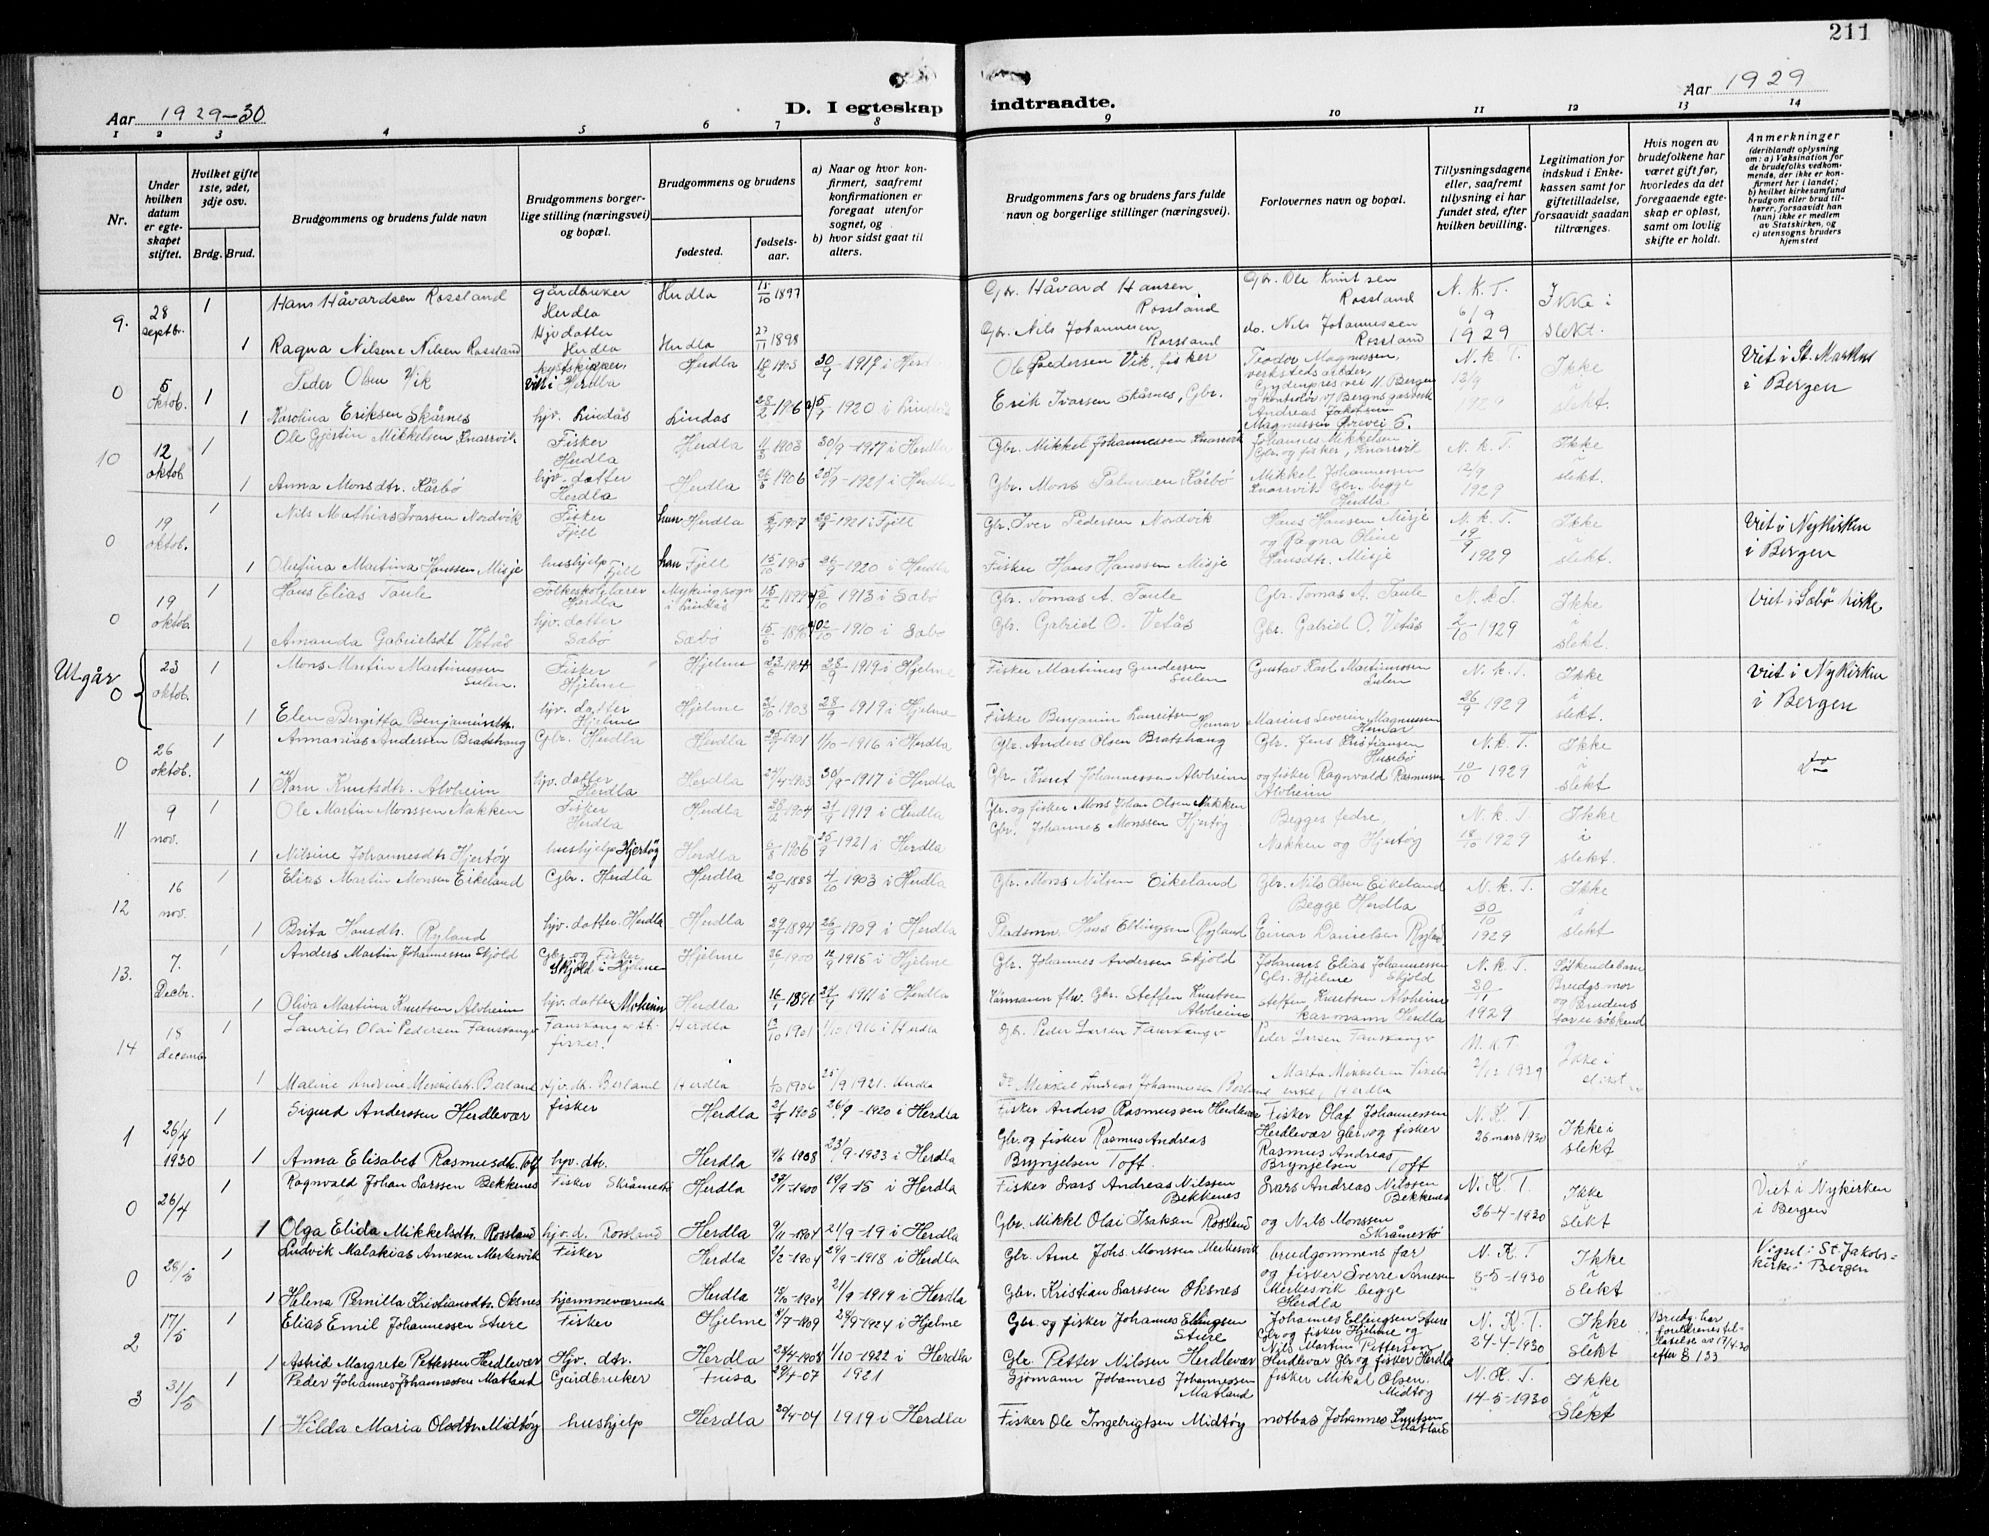 211
Aar 1929-30
D. I egteskap indtraadte.
Aar 1929
1 2 3 4 5 6 7 8 9 10 11 12 13 14
Nr.
Under hvilken datum er egteskapet stiftet.
Hvilket gifte 1ste, 2det, 3dje osv.
Brdg. Brud.
Brudgommens og brudens fulde navn
Brudgommens borgerlige stilling (næringsvei) og bopæl.
Brudgommens og brudens
fødested.
fødselsaar.
a) Naar og hvor konfirmert, saafremt konfirmationen er foregaat utenfor sognet, og
b) hvor sidst gaat til alters.
Brudgommens fars og brudens fars fulde navn og borgerlige stillinger (næringsvei).
Forlovernes navn og bopæl.
Tillysningsdagene eller, saafremt tillysning ei har fundet sted, efter hvilken bevilling.
Legitimation for indskud i Enkekassen samt for giftetilladelse, forsaavidt saadan tiltrænges.
Hvis nogen av brudefolkene har været gift før, hvorledes da det foregaaende egteskap er opløst, samt om lovlig skifte er holdt.
Anmerkninger
(deriblandt oplysning om: a) Vaksination for de brudefolks vedkommende, der ikke er konfirmert her i landet; b) hvilket kirkesamfund brudgom eller brud tilhører, forsaavidt han (hun) ikke er medlem av Statskirken, og c) utensogns bruders hjemsted
9. 28 septbr. 1 Hans Håvardsen Rossland gårdbruker Herdla Herdla 15/10 1897 Gbr. Håvard Hansen Rossland Gbr. Ole Knutsen Rossland N. K. T. 6/9 1929 Ikke i slekt.
1 Ragna Nilsine Nilsen Rossland Hjv. datter Herdla Herdla 27/11 1898 Gbr. Nils Johannesen Rossland do. Nils Johannessen Rossland
0 5 oktob. 1 Peder Olsen Vik Vik i Herdla Herdla 1903 30/9-1917 i Herdla Ole Pedersen Vik, fisker Teodor Magnussen, verkstedsarbeider, N. K. T. 12/9 1929 Ikke i slekt. Viet i St. Markus i Bergen
1 Karolina Eriksen Skårnes hjv. Lindås Lindås 28/2 1920 i Lindås Erik Ivarsen Skårnes, Gbr. Andreas Jakobsen Magnussen
10 12 oktob. 1 Ole Gjertin Mikkelsen Knarrvik Fisker Herdla Herdla 1903 30/9-1917 i Herdla Gbr. Mikkel Johannessen Knarrvik Johannes Mikkelsen Gbr. og fisker, Knarrvik N. K. T. 12/9 1929 Ikke i slekt.
1 Anna Monsdtr. Kårbø hjv. datter Herdla Herdla 26/6 1906 25/9-1921 i Herdla Gbr. Mons Kårbø Mikkel Johannessen Knarrvik Gbr. begge Herdla
0 19 oktob. 1 Nils Mathias Ivarsen Nordvik Fisker Fjell han Herdla 1907 1921 i Fjell Gbr. Iver Pedersen Nordvik Hans Hansen Misje og Ragna Oline Hansdtr. Misje N. K. T. 19/9 1929 Ikke i slekt. Viet i Nykirken i Bergen
1 Olufina Martina Hanssen Misje hushjelp Fjell Fjell 15/10 1905 26/9-1920 i Herdla Fisker Hans Hanssen Misje
0 19 oktob. 1 Hans Elias Taule Folkeskolelærer Herdla Mykingsogn i Lindås 15/2 1899 1913 i Sæbø Gbr. Tomas A. Taule Gbr. Tomas A. Taule N. K. T. 2/10 1929 Ikke i slekt. Viet i Sæbø kirke
1 Amanda Gabrielsdt Vetås hjv. datter Sæbø Sæbø 1910 i Sæbø Gbr. Gabriel O. Vetås Gbr. Gabriel O. Vetås
Utgår 0 23 oktob. 1 Mons Martin Martinussen Sulen. Fisker Hjelme Hjelme 28/9-1919 i Hjelme Fisker Martines Gundersen Sulen Gustav Karl Martinussen Sulen N. K. T. 26/9 1929 Ikke i slekt. Viet i Nykirken i Bergen
1 Elen Bergitta Benjaminsdtr. hjv. datter Hjelme Hjelme 1903 28/9-1919 i Hjelme Fisker Benjamin Lauritsen Hernar Marius Severin Magnussen Hernar
0 26 oktob. 1 Annanias Andersen Bratshaug Gbr. Herdla Herdla 1901 1/10-1916 i Herdla Gbr. Anders Olsen Bratshaug Gbr. Jens Kristiansen Husebø N. K. T. 10/10 1929 Ikke i slekt do
1 Karn Knutsdtr. Alvheim hjv. datter Herdla Herdla 27/4-1903 30/9-1917 i Herdla Gbr. Knut Johannessen Alvheim og fisker Ragnvald Rasmussen Alvheim
11 9 nov. 1 Ole Martin Monssen Nakken Fisker Herdla Herdla 1904 21/9 1919 i Herdla Gbr. og fisker Mons Johan Olsen Nakken Begges fedre, Nakken og Hjertøy N. K. T. 18/10 1929 Ikke i slekt.
1 Nilsine Johannesdtr Hjertøy hushjelp Hjertøy Herdla 1906 1921 i Herdla Gbr. Johannes Monssen Hjertøy
12 16 nov. 1 Elias Martin Monsen Eikeland Gbr. Herdla Herdla 1888 4/10 1903 i Herdla Gbr. Mons Nilsen Eikeland Gbr. Nils Olsen Eikeland Begge Herdla N. K. T. 30/10 1929 Ikke i slekt
1 Brita Hansdtr. Ryland hjv. datter. Herdla Herdla 1894 26/9-1909 i Herdla Pladsmn. Hans Ellingsen Ryland Einar Danielsen Ryland
13. 7. Decbr. 1 Anders Martin Johannessen Skjold Gbr og Fisker Skjold i Hjelme Hjelme 1900 1915 i Hjelme Gbr. Johannes Andersen Skjold Johannes Elias Johannessen Gbr. Hjelme Skjold N. K. T. 20/11 1929 Søskendebarn Brudgs mor og Brudens far er søskend
1 Oliva Martina Knutsen Alvheim hjv. datter Alvheim Herdla 1891 1911 i Herdla Kårmann flw. Gbr. Steffen Knutsen Alvheim Steffen Knutsen Alvheim kårmann Herdla
14 18 decembr 1 Laurits Olai Pedersen Fauskanger Fauskanger fisker. Herdla 1901 1/10 1916 i Herdla Gbr. Peder Larsen Fauskanger Peder Larsen Fauskanger N. K. T. 2/12 1929 Ikke i slekt
1 Maline Andrine Mikkelsdtr. Berland Hjv. dt. Berland Herdla 1906 25/9 1921. Herdla do Mikkel Andreas Johannessen Berland Marta Mikkelsen enke, Herdla
1 26/4 1930 1 Sigurd Anderssen Herdlevær fisker Herdla 1903 26/9-1920 i Herdla Fisker Anders Rasmussen Herdlevær Fisker Olaf Johannessen Herdlevær gbr. og fisker N. K. T. 26 mars 1930 Ikke i slekt
1 Anna Elisabet Rasmusdtr. Toft hjv. dtr. Herdla 9/6 1908 23/9-1923 i Herdla Gbr. og fisker Rasmus Andreas Brynjelsen Toft. Rasmus Andreas Brynjelsen Toft
0 26/4 1 Ragnvald Johan Larssen Bekkenes Fisker Skråmestø Herdla 1900 19/9-15 i Herdla Fisker Lars Andreas Nilssen Bekkenes Lars Andreas Nilssen Bekkenes N. K. T. 26-4-1930 Ikke i Slekt Viet i Nykirken i Bergen
1 Olga Elida Mikkelsdtr. Rossland hjv. d. Rossland Herdla 9/11-1904 21/9-19 i Herdla Gbr. Mikkel Olai Isaksen Rossland og Nils Monssen Skråmestø
0 28/5 1 Ludvik Malakias Arnesen Merkesvik Fisker Herdla 2/2-1904 29/9-1918 i Herdla Gbr. Arne Johs. Monssen Merkesvik brudgommens far og fisker Sverre Arnesen N. K. T 8-5-1930 Ikke i Slekt Vigsel i St. Jakobskirke i Bergen
1 Helena Pernilla Kristiansdtr. Oksnes hjemmeværende Herdla 1904 21/9-1919 i Herdla Gbr. Kristian Larssen Oksnes Merkesvik begge Herdla
2 17/5 1 Elias Emil Johannessen Sture Fisker Hjelme 8/7-1909 28/9-1924 i Hjelme Gbr. og fisker Johannes Ellingsen Sture Johannes Ellingsen Sture Gbr og fisker Hjelme og N. K. T. 24-4-1930 Ikke i Slekt Brudg. har foreldrenes tillatelse av 17/4-30 efter § 133
1 Astrid Margrete Pettersen Herdlevær Hjv. dtr. Herdla 1908 1/10-1922 i Herdla Gbr. Petter Nilssen Herdlevær Nils Martin Pettersen Herdlevær Gbr og fisker Herdla
3 31/5 1 Peder Johannes Johannessen Matland Gårdbruker Fusa 29/4-07 1921 Sjømann Johannes Johannessen Matland fisker Mikal Olsen Midtøy N. K. T 14-5-1930 Ikke i Slekt
1 Hilda Maria Olsdtr. Midtøy hushjelp Herdla 20/4-04 1919 i Herdla Fisker Ole Ingebrigtsen Midtøy notbas Johannes Knutsen Matland